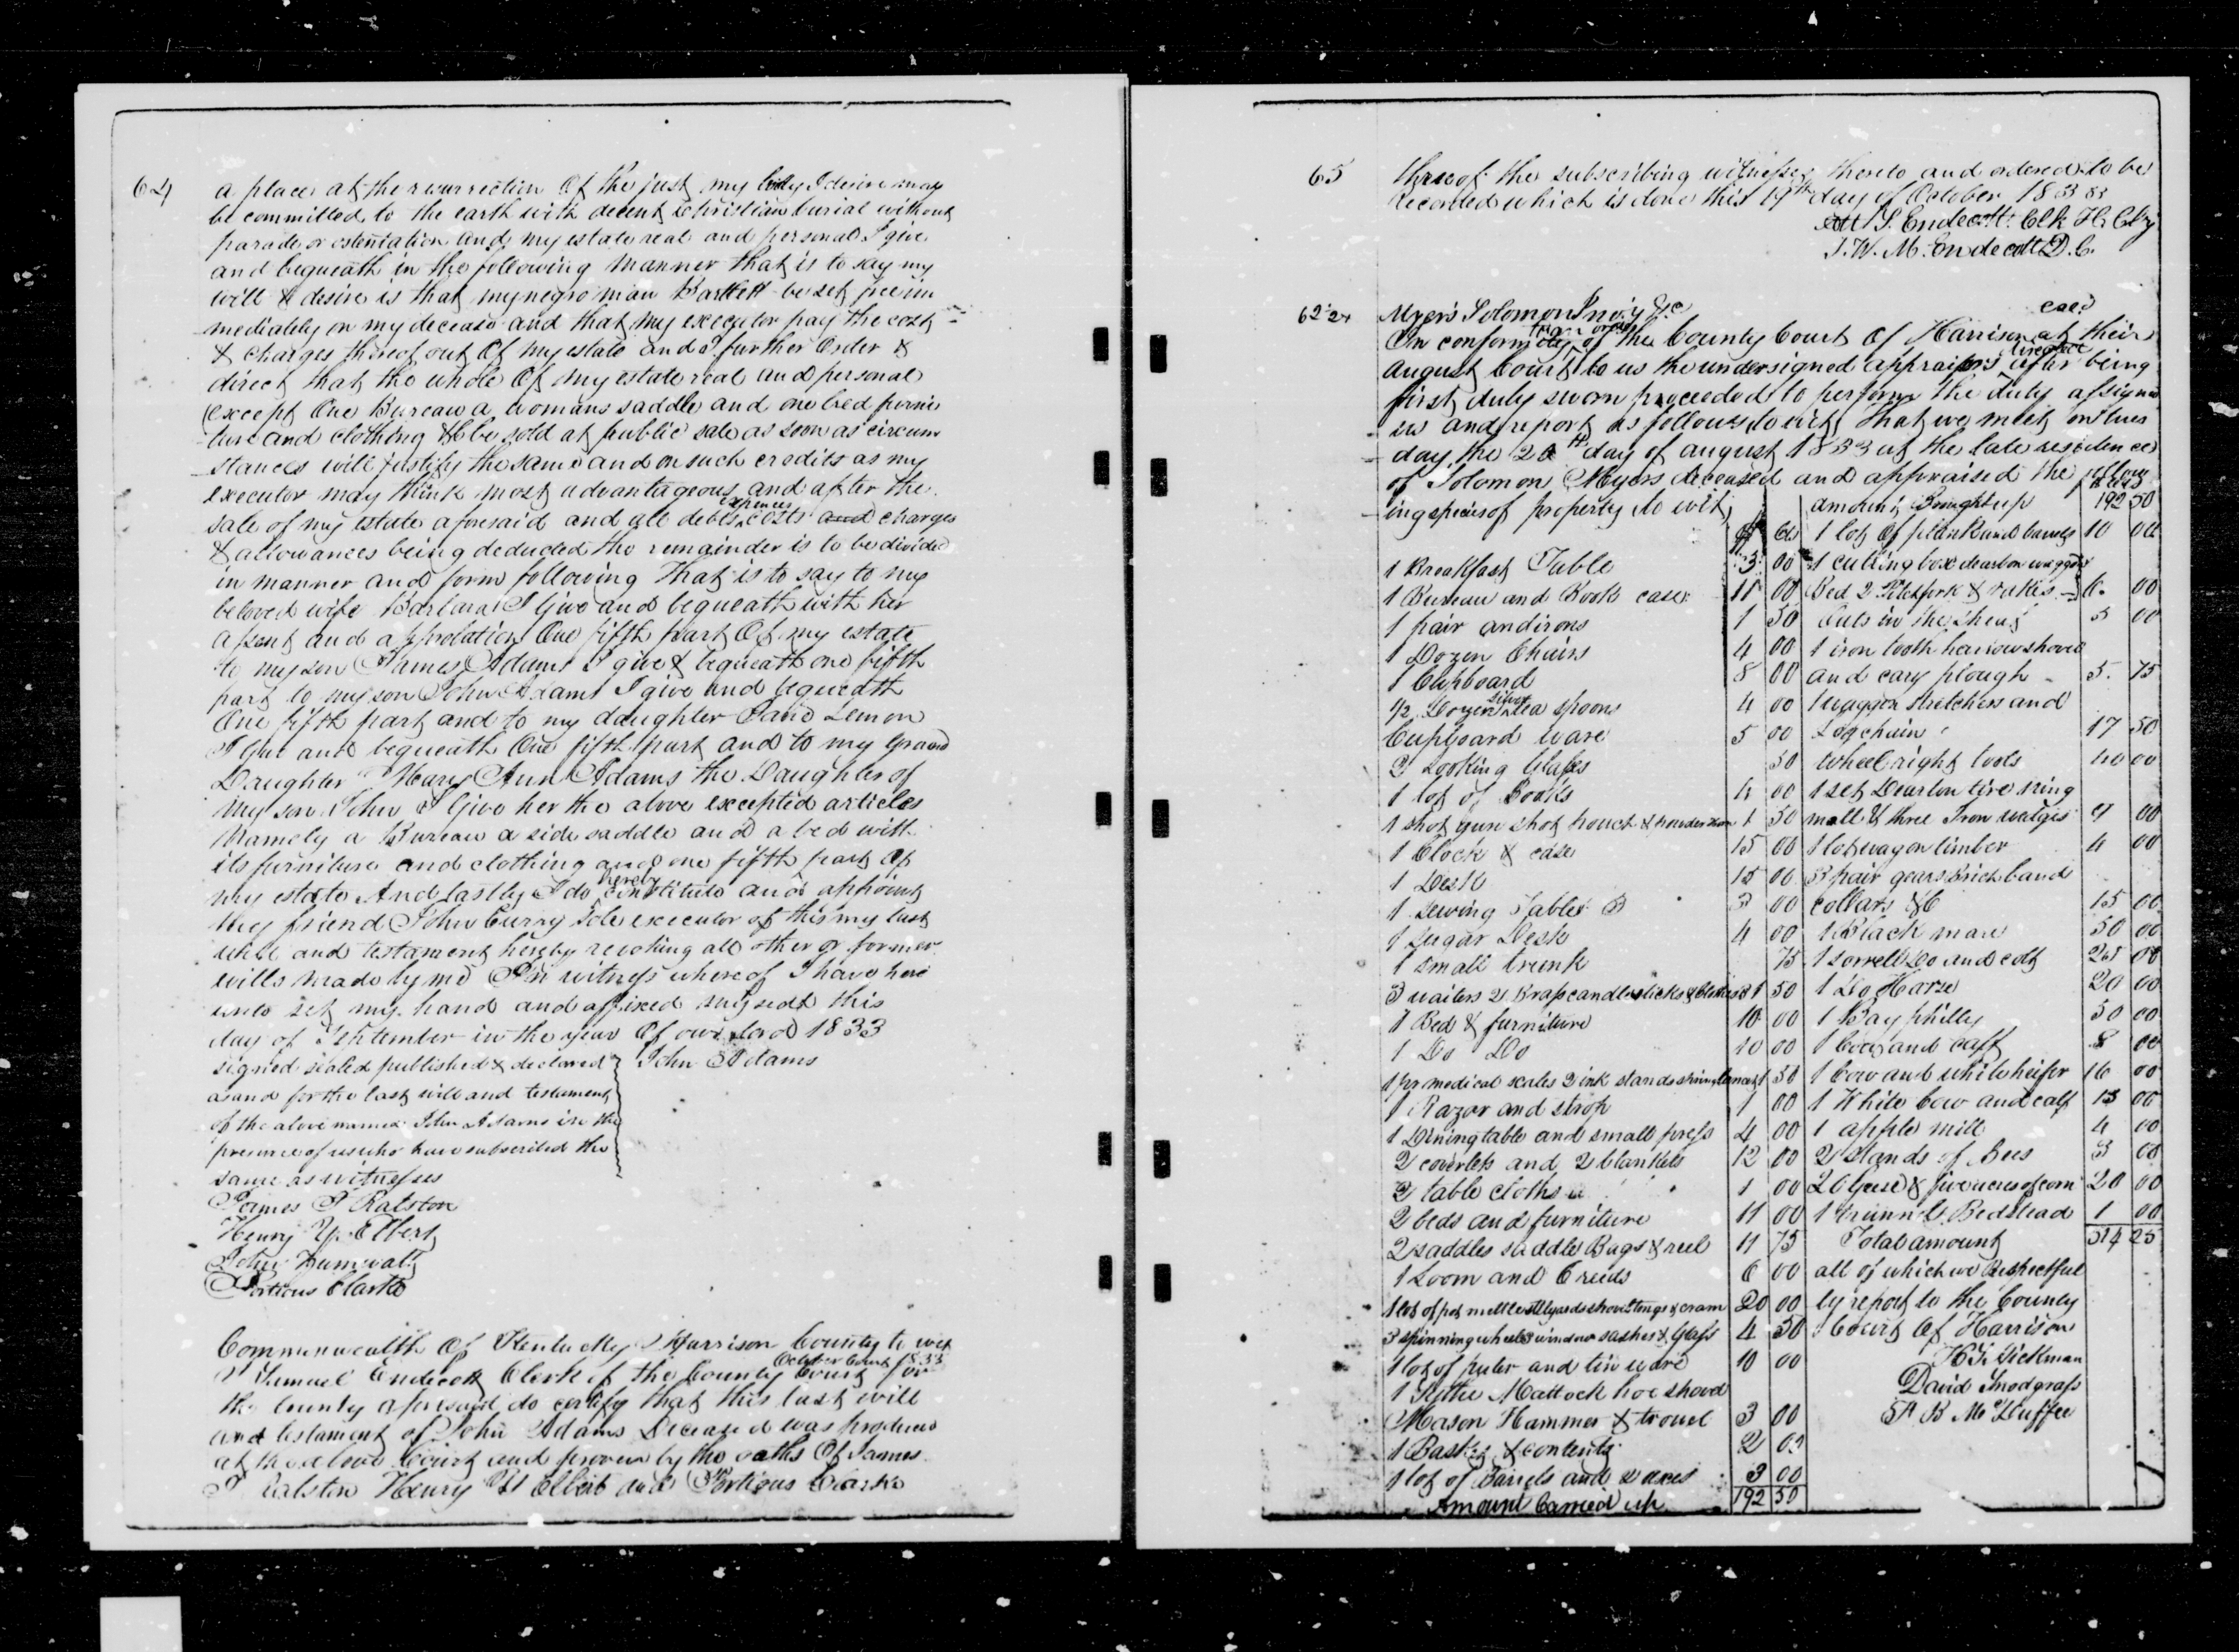 64
a place at the resurrection of the just my body I desire may
be committed to the earth with decent christian burial without
parade or ostentation and my estate real and personal I give
and bequeath in the following manner that is to say my
will & desire is that my negro man Bartlett be set free im
mediately on my decease and that my executor pay the cost
& charges thereof out of my estate and I further Order &
direct that the whole of my estate real and personal
except One Bureau a womans saddle and one bed furni
ture and clothing &C be sold at public sale as soon as circum
stances will justify the same and on such credits as my
executor may think most advantageous and after the
sale of my estate aforesaid and all debts expences costs and charges
& allowances being deducted the remainder is to be divided
in manner and form following That is to say to my
beloved wife Barbara I Give and bequeath with her
assent and approbation One fifth part Of my estate
to my son James Adams I give & bequeath one fifth
part to my son John Adams I give and bequeath
One fifth part and to my daughter Lemon
I give and bequeath One fifth part and to my Grand
Daughter Mary Ann Adams the Daughter of
my son John I Give her the above excepted articles
Namely a Bureau a side saddle and a bed with
its furniture and clothing and one fifth part of
my estate And lastly I do hereby constitute and appoint
my friend John Curry Sole executor of this my last
will and testament hereby revoking all other or former
wills made by me In witness whereof I have here
unto set my hand and affixed my seal this
day of September in the year Of our Lord 1833
signed sealed published & declared John Adams
as and for the last will and testament
of the above named John Adams in the
presence of us who have subscribed the
same as witnesses
James T Ralston
Henry Elbert
John Humwalt
Portious Clarke
Commonwealth Of Kentucky Harrison County to wit
October Court 1833
I Samuel Endecott Clerk of the County Court for
the County aforesaid do certify that this last will
and testament of John Adams Deceased was produced
at the above Court and proven by the oaths Of James
T Ralston Henry Elbert and Portious Clarke
65
three of the subscribing witnesses thereto and ordered to be
recorded which is done this 19th day of October 1833
Att S. Endecott Clk H. C. Cty
J. W. M. Endecott D. C.
Myers Solomon Invoy &c
In conformity to an order of the County Court Of Harrison at their
August Court to us the undersigned appraisers after being
first duly sworn proceeded to perform the duty assigned
us and report as follows to wit, That we meet on tues
day the day of august 1833 at the late residence
of Solomon Myers deceased and appraised the follow
ing species of property to wit,
1 Breakfast Table 3 00
1 Bureau and Book case 11 00
1 pair andirons 1 50
1 Dozen Chairs 4 00
1 Cupboard 8 00
1/2 Dozen silver tea spoons 4 00
Cupboard ware 5 00
2 Looking Glasses 50
1 lot of Books 4 00
1 shot gun shot pouch & powder horn 1 50
1 Clock & case 15 00
1 Desk 15 00
1 Sewing Table 3 00
1 Sugar Desk 4 00
1 small trunk 75
3 waiters 2 Brass candlesticks 1 50
1 Bed & furniture 10 00
1 Do Do 10 00
1 pr medical scales 2 ink stands spring lancet 1 50
1 Razor and strop 1 00
1 Dining table and small press 4 00
2 coverlets and 2 blankets 12 00
2 table cloths 1 00
2 beds and furniture 11 00
2 saddles saddle Bags & reel 11 75
1 Loom and 6 reeds 6 00
1 lot of pot mettle stilyards shovel tongs & cram 20 00
3 spinning wheels window sashes & Glass 4 50
1 lot of puter and tin ware 10 00
1 Sythe Mattock hoe shovel
Mason Hammer & trowel 3 00
1 Basket & contents 2 00
1 lot of Barrels and 2 axes 3 00
Amount Carried up 192 50
amount Brought up 192 50
1 lot of plank and barrels 10 00
1 cutting box dearbon waggon
Bed 2 Pitchfork & rakes 6. 00
Oats in the sheaf 5 00
1 iron tooth harrow shovel
and cary plough 5. 75
1 waggon stretchers and
Log chain 17 50
wheel right tools 40 00
1 set Dearbon tire ring
mall & three Iron wedges 9 00
1 lot wagon timber 4 00
3 pair gears Brich band
collars &C 15 00
1 Black mare 50 00
1 sorrell Do and colt 00
1 Do Horse 20 00
1 Bay philly 30 00
1 Cow and calf 8 00
1 Cow and white heifer 16 00
1 White Cow and calf 00
1 apple mill 4 00
2 Stands of Bees 3 00
20 Geese & five acres of corn 20 00
1 Trunnel Bedstead 1 00
Total amount 514 25
all of which we Respectful
ly report to the County
Court of Harrison
Dickman
David Snodgrass
McDuffee